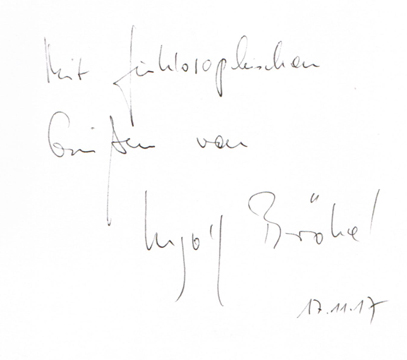 Mit fühlosophischen
Grüßen von
Ingolf Brökel
17.11.17